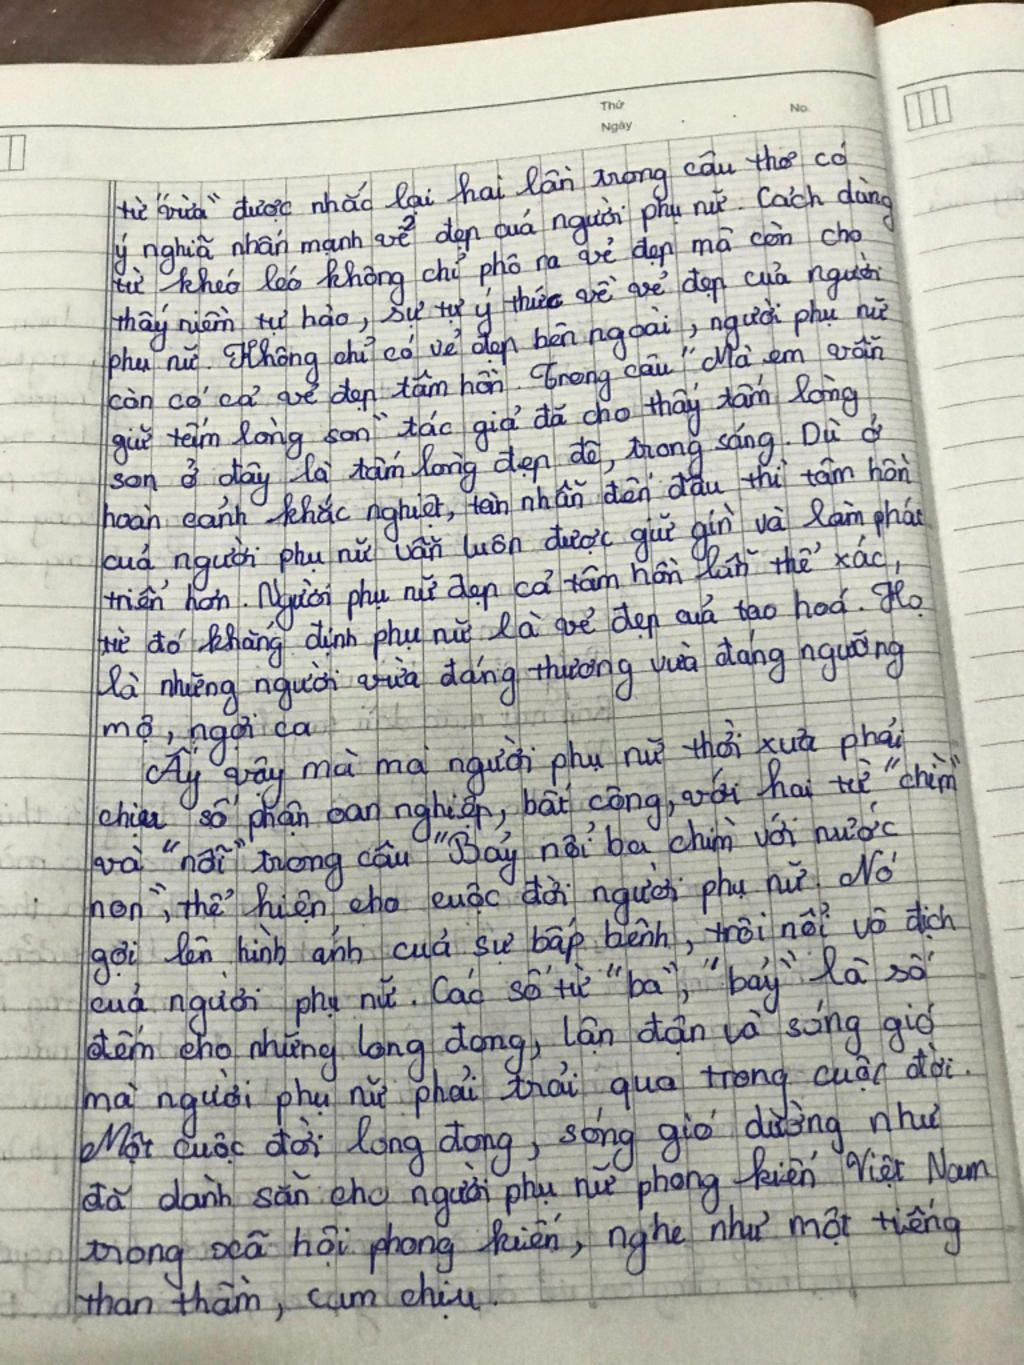 Thứ
No.
Ngày
từ "vừa" được nhắc lại hai lần trong câu thơ có
ý nghiã nhấn mạnh vẻ đẹp cuả người phụ nữ. Cách dùng
từ khéo léo không chỉ phô ra vẻ đẹp mà còn cho
thấy niềm tự hào, sự tự ý thức về vẻ đẹp của người
phụ nữ. Không chỉ có vẻ đẹp bên ngoài, người phụ nữ
còn có cả vẻ đẹp tâm hồn. Trong câu "Mà em vẫn
giữ tấm lòng son" tác giả đã cho thấy tấm lòng
son ở đây là tấm lòng đẹp đẽ, trong sáng. Dù ở
hoàn cảnh khắc nghiệt, tàn nhẫn đến đâu thì tâm hồn
cuả người phụ nữ vẫn luôn được giữ gìn và làm phát
triển hơn. Người phụ nữ đẹp cả tâm hồn lẫn thể xác,
từ đó khẳng định phụ nữ là vẻ đẹp cuả tạo hoá. Họ
là những người vừa đáng thương vừa đáng ngưỡng
mộ, ngợi ca
Ấy vậy mà mà người phụ nữ thời xưa phải
chịu số phận oan nghiệp, bất công, với hai từ "chìm"
và "nổi" trong câu "Bảy nổi ba chìm với nước
non", thể hiện cho cuộc đời người phụ nữ. Nó
gợi lên hình ảnh cuả sự bấp bênh, trôi nổi vô địch
cuả người phụ nữ. Các số từ "ba", "bảy" là số
đếm cho những long đong, lận đận và sóng gió
mà người phụ nữ phải trải qua trong cuộc đời.
Một cuộc đời long đong, sóng gió dường như
đã dành sẵn cho người phụ nữ phong kiến Việt Nam
trong xã hội phong kiến, nghe như một tiếng
than thầm, cam chịu.